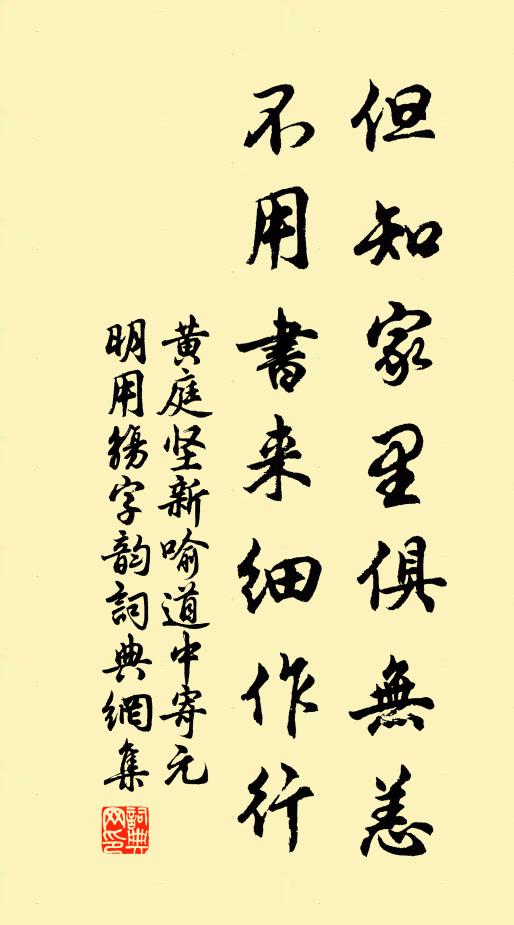 但知家里俱無恙
不用書来细作行
黄庭坚新喻道中寄元
明用觞字韵詞典網集
詞典
网印